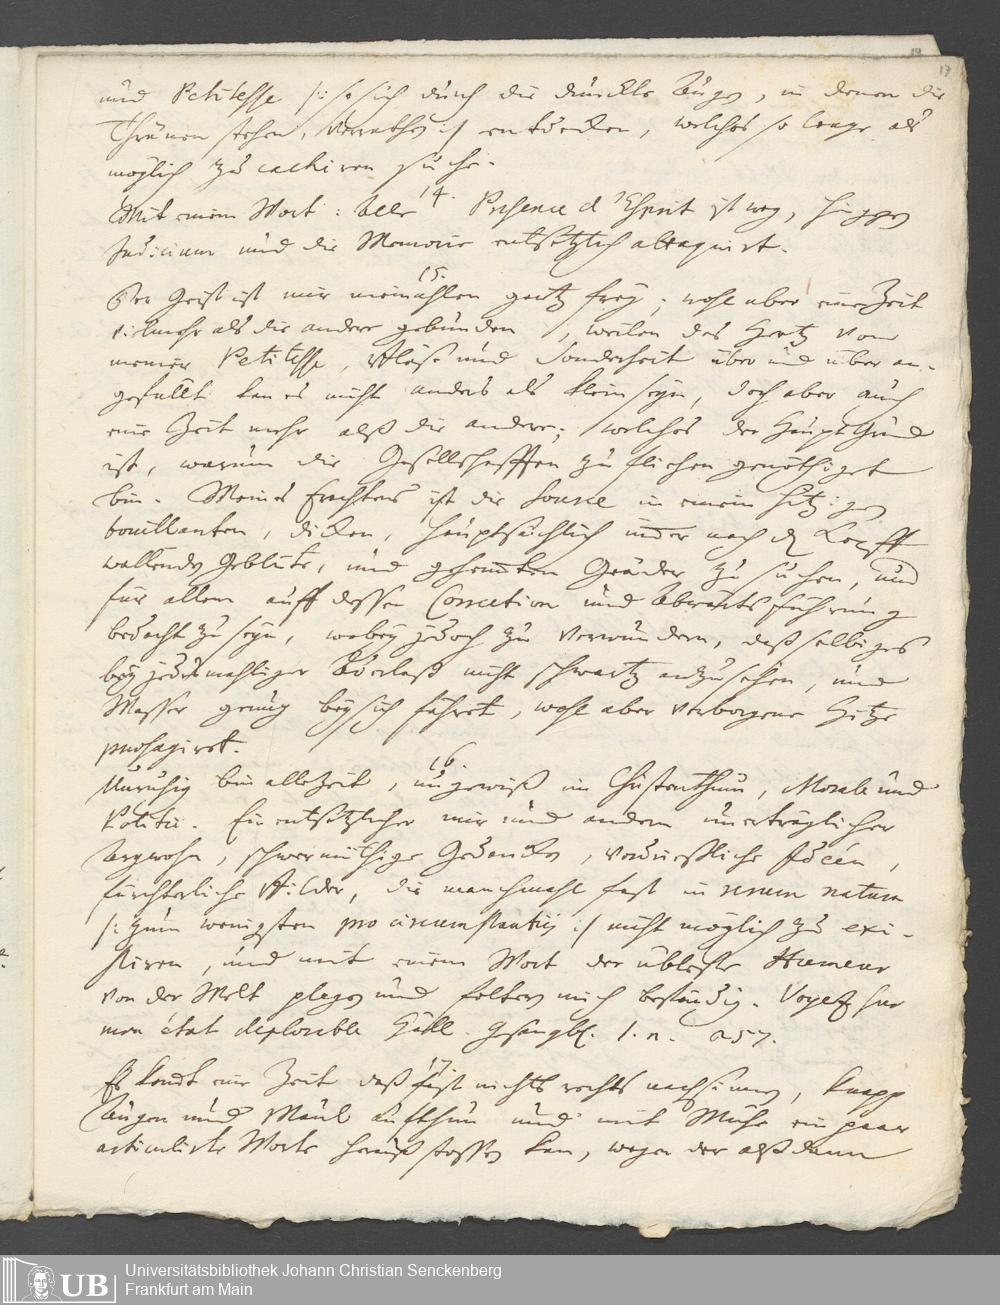 19
17
und Petitesse /: so sich durch die dunckle Augen, in denen die
Thränen stehen, verrathen :/ entdecken, welches so lange als
möglich zu cachiren suche.
14.
Mit einem Wort: alle Presence d'Esprit ist weg, hingegen
Judicium und die Memorie entsetzlich attaquirt.
15.
Der Geist ist mir niemahlen gantz frey, wohl aber eine Zeit
vielmehr als die andere gebunden, weilen das Hertz von
meiner Petitesse, Blöße und Sonderheit über und über an-
gefüllt kan es nicht anders als klein seyn, doch aber auch
eine Zeit mehr alß die andere; welches der HauptGrund
ist, warum die Gesellschafften zu fliehen genöthiget
bin. Meines Erachtens ist die Source in einem hitzigen
bouillanten, dicken, hauptsächlich immer nach dem Kopff
wallenden Geblüte, und gehemmten Geäder zu suchen, und
für allem auff dessen Correction und Abwärtsführung
bedacht zu seyn, wobey jedoch zu verwundern, daß selbiges
bey jedesmahliger Aderlaß nicht schwartz anzusehen, und
Wasser genug bey sich führet, wohl aber verborgene Hitze
praesagiret.
16.
Unruhig bin allezeit, ungewiß im Christenthum, Morale und
Politic. Ein entsetzlicher mir und andern unerträglicher
Argwohn, schwermüthige Gedancken, verdrießliche Idéen,
fürchterliche Bilder, die manchmahl fast in rerum natura
/: zum wenigsten pro circumstantiis :/ nicht möglich zu exi-
stiren, und mit einem Wort der übleste Humeur
von der Welt plagen und foltern mich beständig. Voyez sur
mon état deplorable Hall. Gesangb. 1. n. 257.
17.
Es komt eine Zeit daß fast nichts rechts nachsinnen, knapp
Augen und Maul aufthun und mit Mühe ein paar
articulirte Worte herauß stossen kan, wegen der alßdann
UB
Universitätsbibliothek Johann Christian Senckenberg
Frankfurt am Main